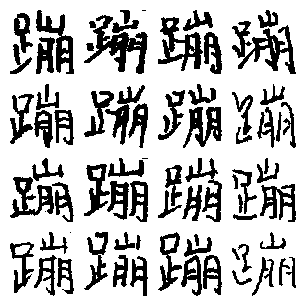 蹦蹦蹦蹦
蹦蹦蹦蹦
蹦蹦蹦蹦
蹦蹦蹦蹦